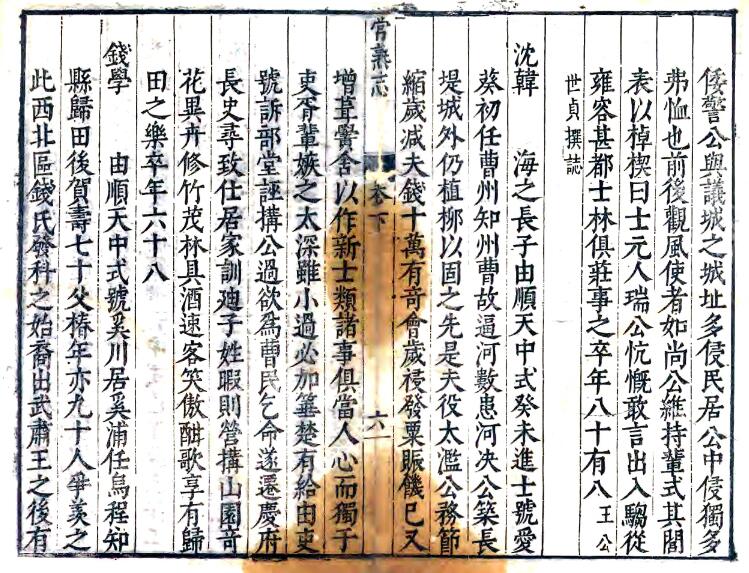 倭警公與議城之城址多侵民居公中侵獨多
弗恤也前後觀風使者如尚公維持輩式其閭
表以棹楔曰士元人瑞公忼慨敢言出入騶從
雍容甚都士林俱莊事之卒年八十有八王公
世貞撰誌
沈韓　海之長子由順天中式癸未進士號愛
葵初任曹州知州曹故逼河數患河決公築長
堤城外仍植柳以固之先是夫役太濫公務節
縮歲減夫錢十萬有奇會歲祲發粟賑饑已又
常熟志　卷下　六
增葺黌舍以作新士類諸事俱當人心而獨于
吏胥輩嫉之太深雖小過必加箠楚有給由吏
號訴部堂誣搆公過欲爲曹民乞命遂遷慶府
長史尋致仕居家訓廸子姓暇則營搆山園奇
花異卉修竹茂林具酒速客笑傲酣歌享有歸
田之樂卒年六十八
錢學　由順天中式號奚川居奚浦任烏程知
縣歸田後賀壽七十父椿年亦九十人爭羡之
此西北區錢氏發科之始裔出武肅王之後有